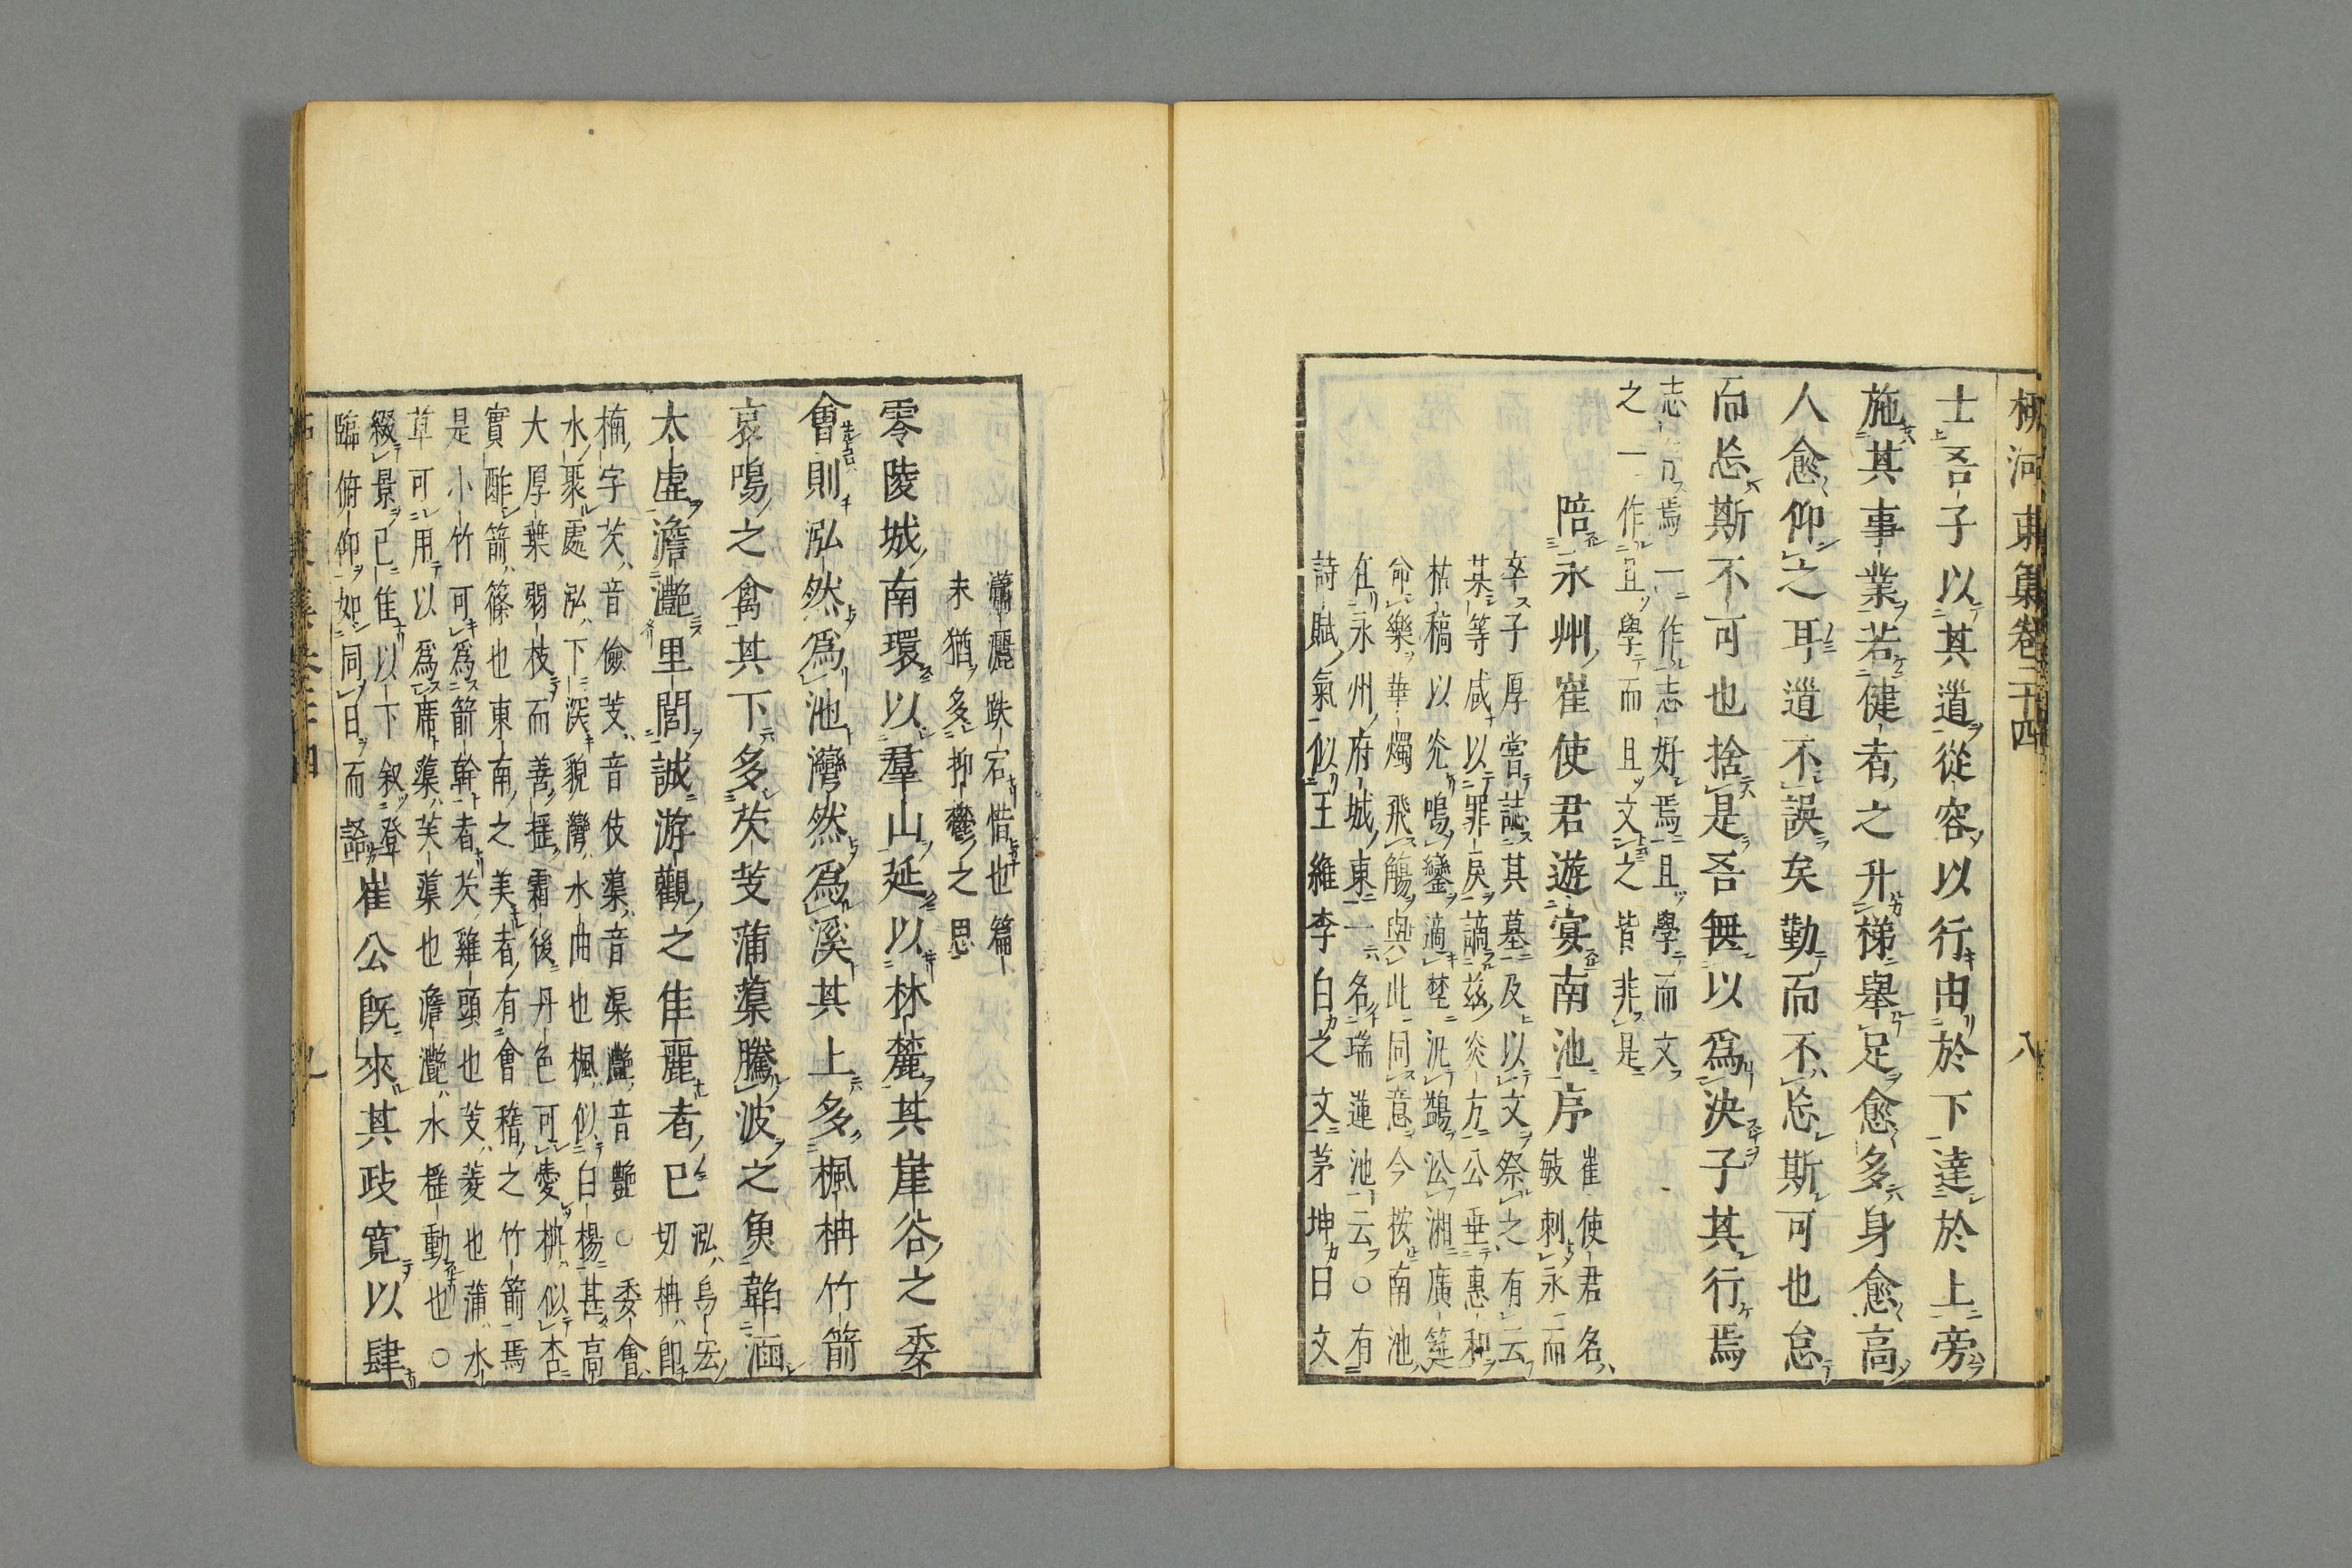 柳河東集卷二十四 八
士吾子以其道從容以行由於下達於上旁
施其事業若健者之升梯舉足愈多身愈高
人愈仰之耳道不誤矣勤而不忘斯可也怠
而忘斯不可也捨是吾無以爲決子其行焉
志焉一作志好焉且學而文
之一作且學而且文之皆非是
陪永州崔使君遊宴南池序
崔使君名
敏刺永而
卒子厚嘗誌其墓及以文祭之有云
某等咸以罪戾謫茲炎方公垂惠和
枯槁以光鳴鑾適野泛鷁㳂湘廣筵
命樂華燭飛觴與此同意今按南池
在永州府城東一名瑞蓮池云○有
詩賦氣似王維李白之文茅坤曰文
瀟灑跌宕惜也篇
末猶多抑鬱之思
零陵城南環以羣山延以林麓其崖谷之委
會則泓然爲池灣然爲溪其上多楓柟竹箭
哀鳴之禽其下多芡芰蒲蕖騰波之魚韜涵
太虛澹灧里閭誠游觀之佳麗者已
泓烏宏
切柟即
楠字芡音儉芰音伎蕖音渠灧音艷○委會
水聚處泓下深貌灣水曲也楓似白楊甚高
大厚葉弱枝而善搖霜後丹色可愛柟似杏
實酢箭篠也東南之美者有會稽之竹箭焉
是小竹可爲箭幹者芡雞頭也芰菱也蒲水
草可用以爲席蕖芙蕖也澹灧水搖動也○
綴景已隹以下叙登
臨俯仰如同日而語
崔公旣來其政寬以肆